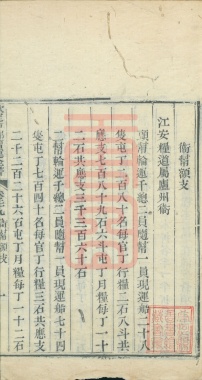 衛幫額支
江安糧道屬廬州衛
頭幫輪運千總二員隨幫一員現運船二十八
隻屯丁二百八十名每官丁行糧二石八斗共
應支七百八十九石六斗屯丁月糧每丁一十
二石共應支三千三百六十石
二幫輪運千總二員隨幫一員現運船七十四
隻屯丁七百四十名每官丁行糧三石共應支
二千二百二十六石屯丁月糧每丁一十二石